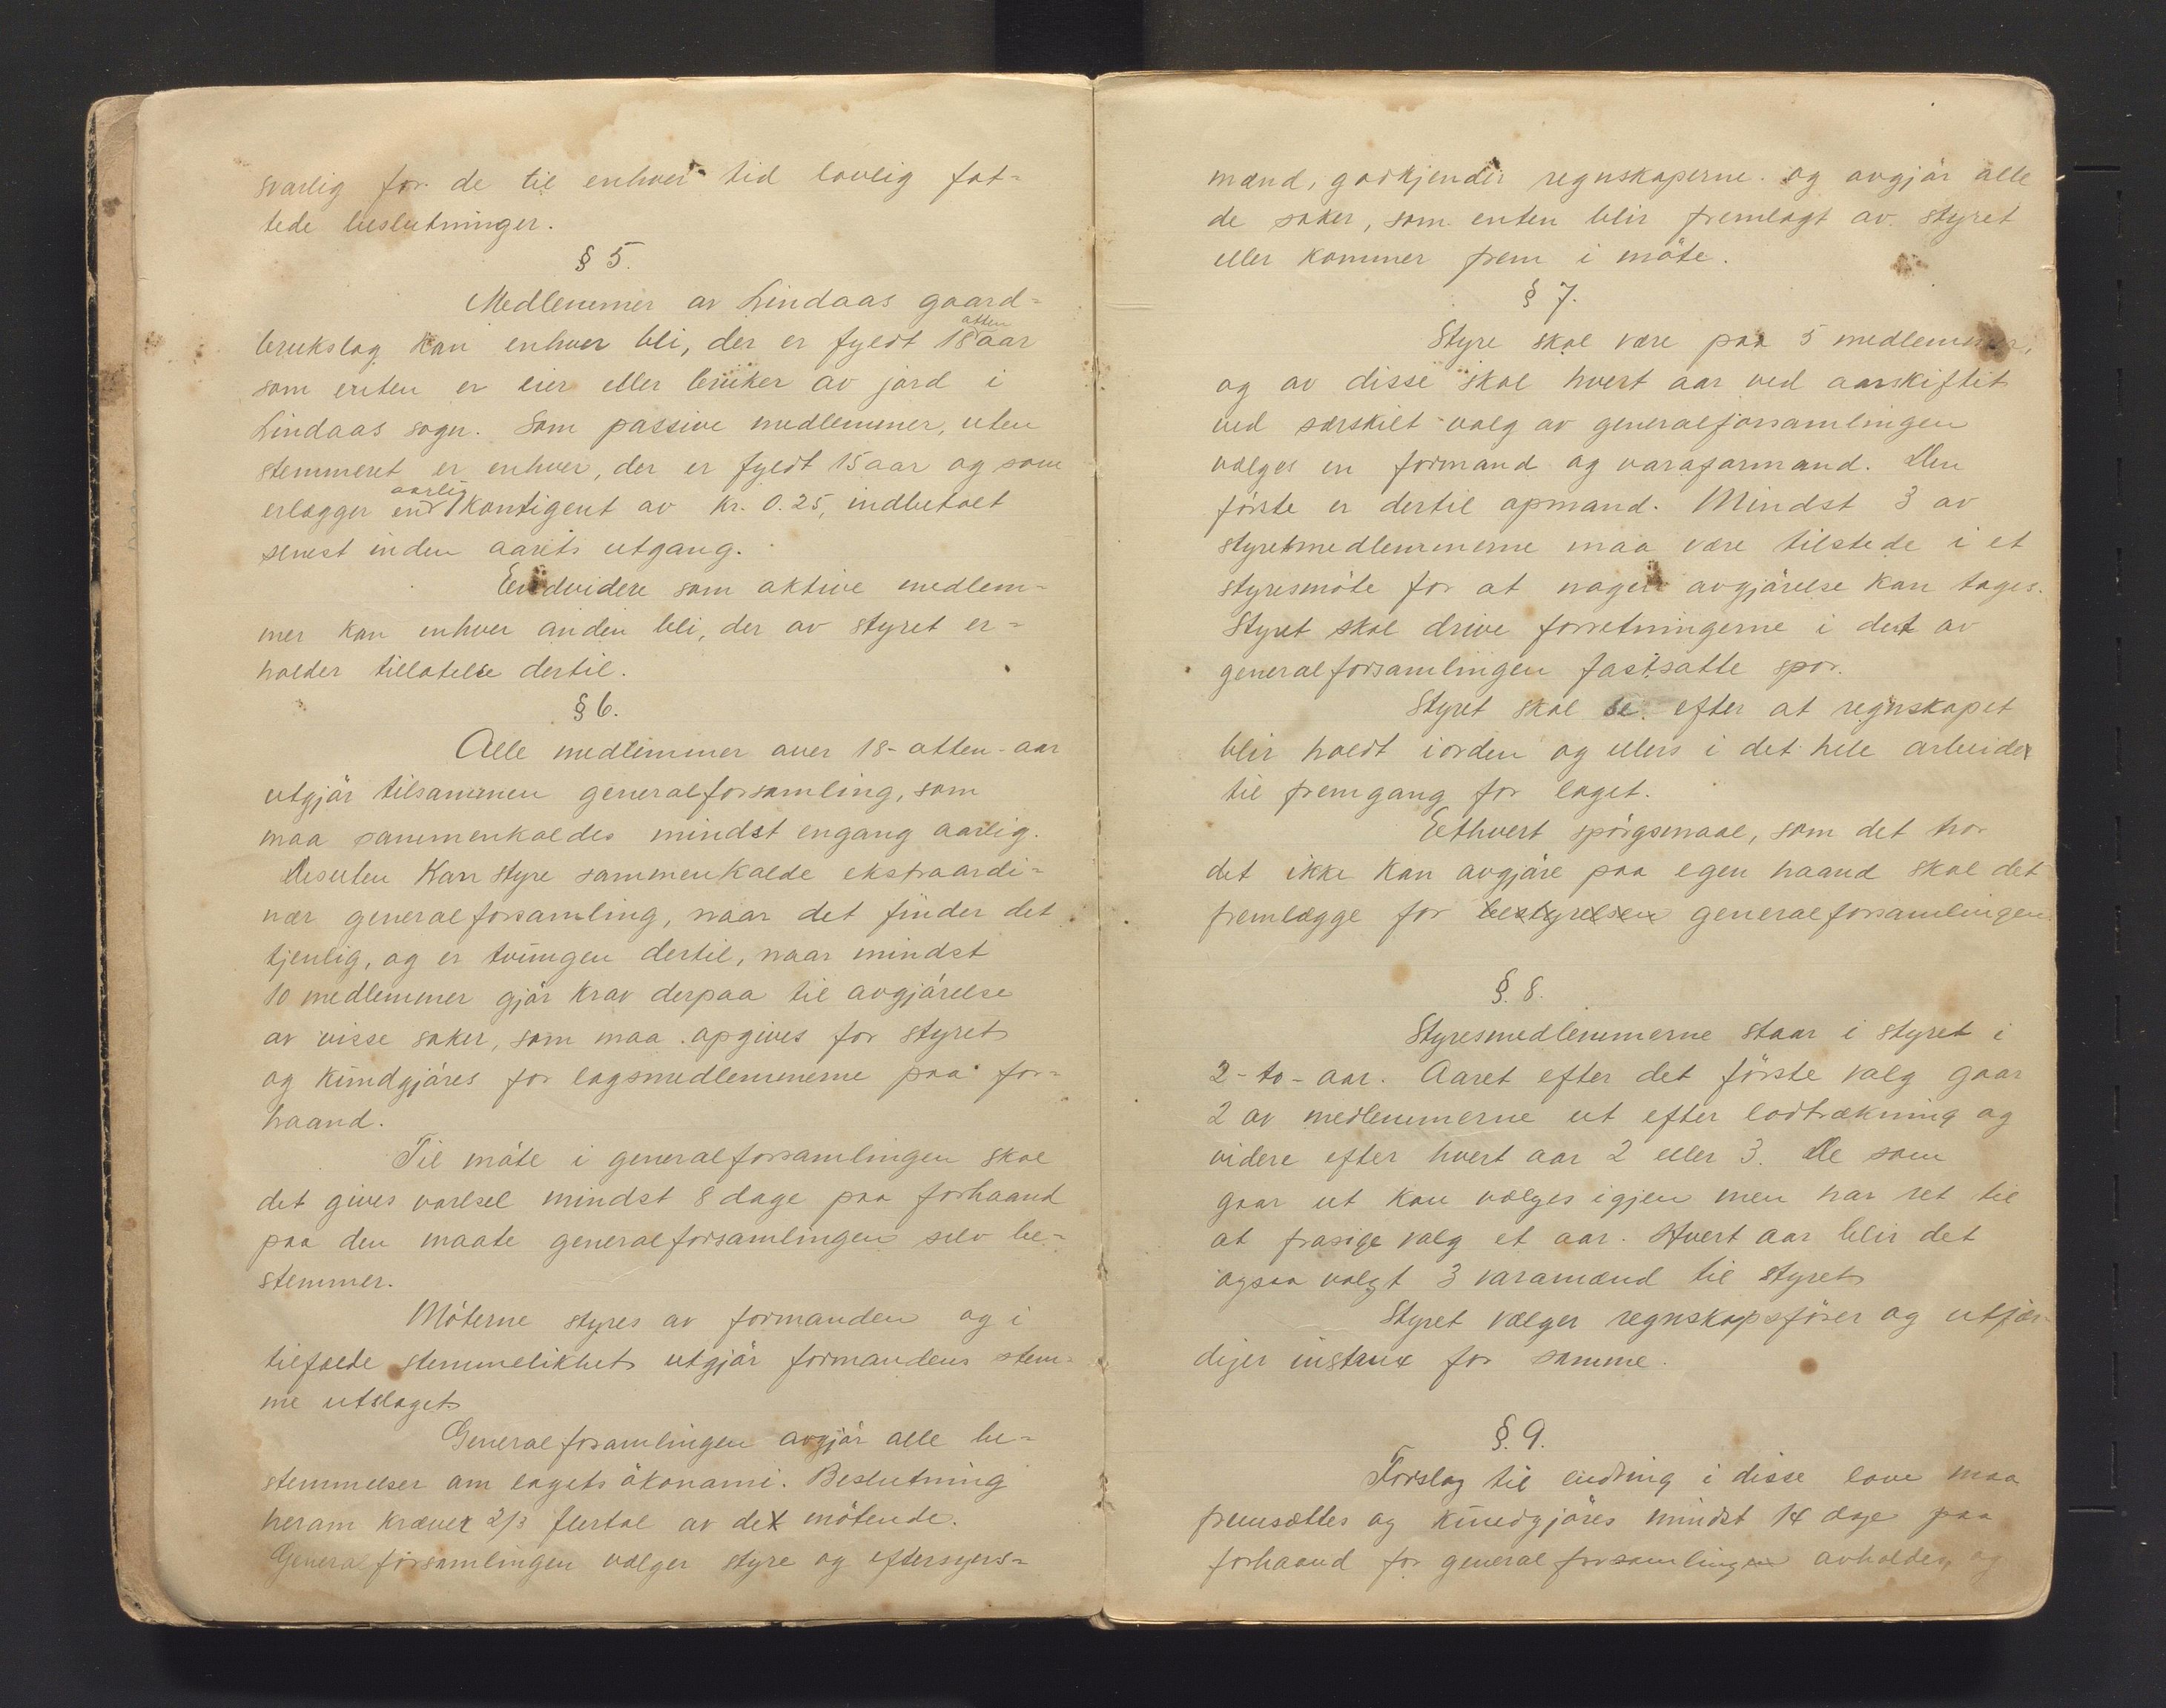 svarlig for de til enhver tid lovlig fat=
tede beslutninger.
§ 5.
Medlemmer av Lindaas gaard=
brukslag kan enhver bli, der er fyldt 18 atten aar
som enten er eier eller bruker av jord i
Lindaas sogn. Som passive medlemmer, uten
stemmeret er enhver, der er fyldt 15 aar og som
erlægger en aarlig kontigent av kr. 0.25, indbetalt
senest inden aarets utgang.
Endvidere som aktive medlem=
mer kan enhver anden bli, der av styret er=
holder tillatelse dertil.
§ 6.
Alle medlemmer over 18-atten-aar
utgjör tilsammen generalforsamling, som
maa sammenkaldes mindst engang aarlig.
Desuten kan styre sammenkalde ekstraordi=
nær generalforsamling, naar det finder det
tjenlig, og er tvungen dertil, naar mindst
10 medlemmer gjör krav derpaa til avgjörelse
av visse saker, som maa opgives for styret
og kundgjöres for lagsmedlemmerne paa for=
haand.
Til möte i generalforsamlingen skal
det gives varlsel mindst 8 dage paa forhaand
paa den maate generalforsamlingen selv be=
stemmer.
Möterne styres av formanden og i
tilfælde stemmelikhet utgjör formandens stem=
me utslaget.
Generalforsamlingen avgjör alle be=
stemmelser om lagets ökonomi. Beslutning
herom kræver 2/3 flertal av de mötende.
Generalforsamlingen vælger styre og eftersyns=
mænd, godkjender regnskaperne og avgjör alle
de saker, som enten blir fremlagt av styret
eller kommer frem i möte.
§ 7.
Styre skal være paa 5 medlemmer,
og av disse skal hvert aar ved aarskiftet
ved særskilt valg av generalforsamlingen
vælges en formand og varaformand. Den
förste er dertil opmand. Mindst 3 av
styretmedlemmerne maa være tilstede i et
styresmöte for at nogen avgjörelse kan tages.
Styret skal drive forretningerne i det av
generalforsamlingen fastsatte spor.
Styret skal se efter at regnskapet
blir holdt iorden og ellers i det hele arbeider
til fremgang for laget.
Ethvert spörgsmaal, som det tror
det ikke kan avgjöre paa egen haand skal det
fremlægge for bestyrelsen generalforsamlingen
§. 8.
Styresmedlemmerne staar i styret i
2-to-aar. Aaret efter det förste valg gaar
2 av medlemmerne ut efter lodtrækning og
videre efter hvert aar 2 eller 3. De som
gaar ut kan vælges igjen men har ret til
at frasige valg et aar. Hvert aar blir det
ogsaa valgt 3 varamænd til styret
Styret vælger regnskapsförer og utfær
diger instrux for samme.
§. 9.
Forslag til endring i disse love maa
fremsættes og kundgjöres mindst 14 dage paa
forhaand for generalforsamlingen avholdes, og